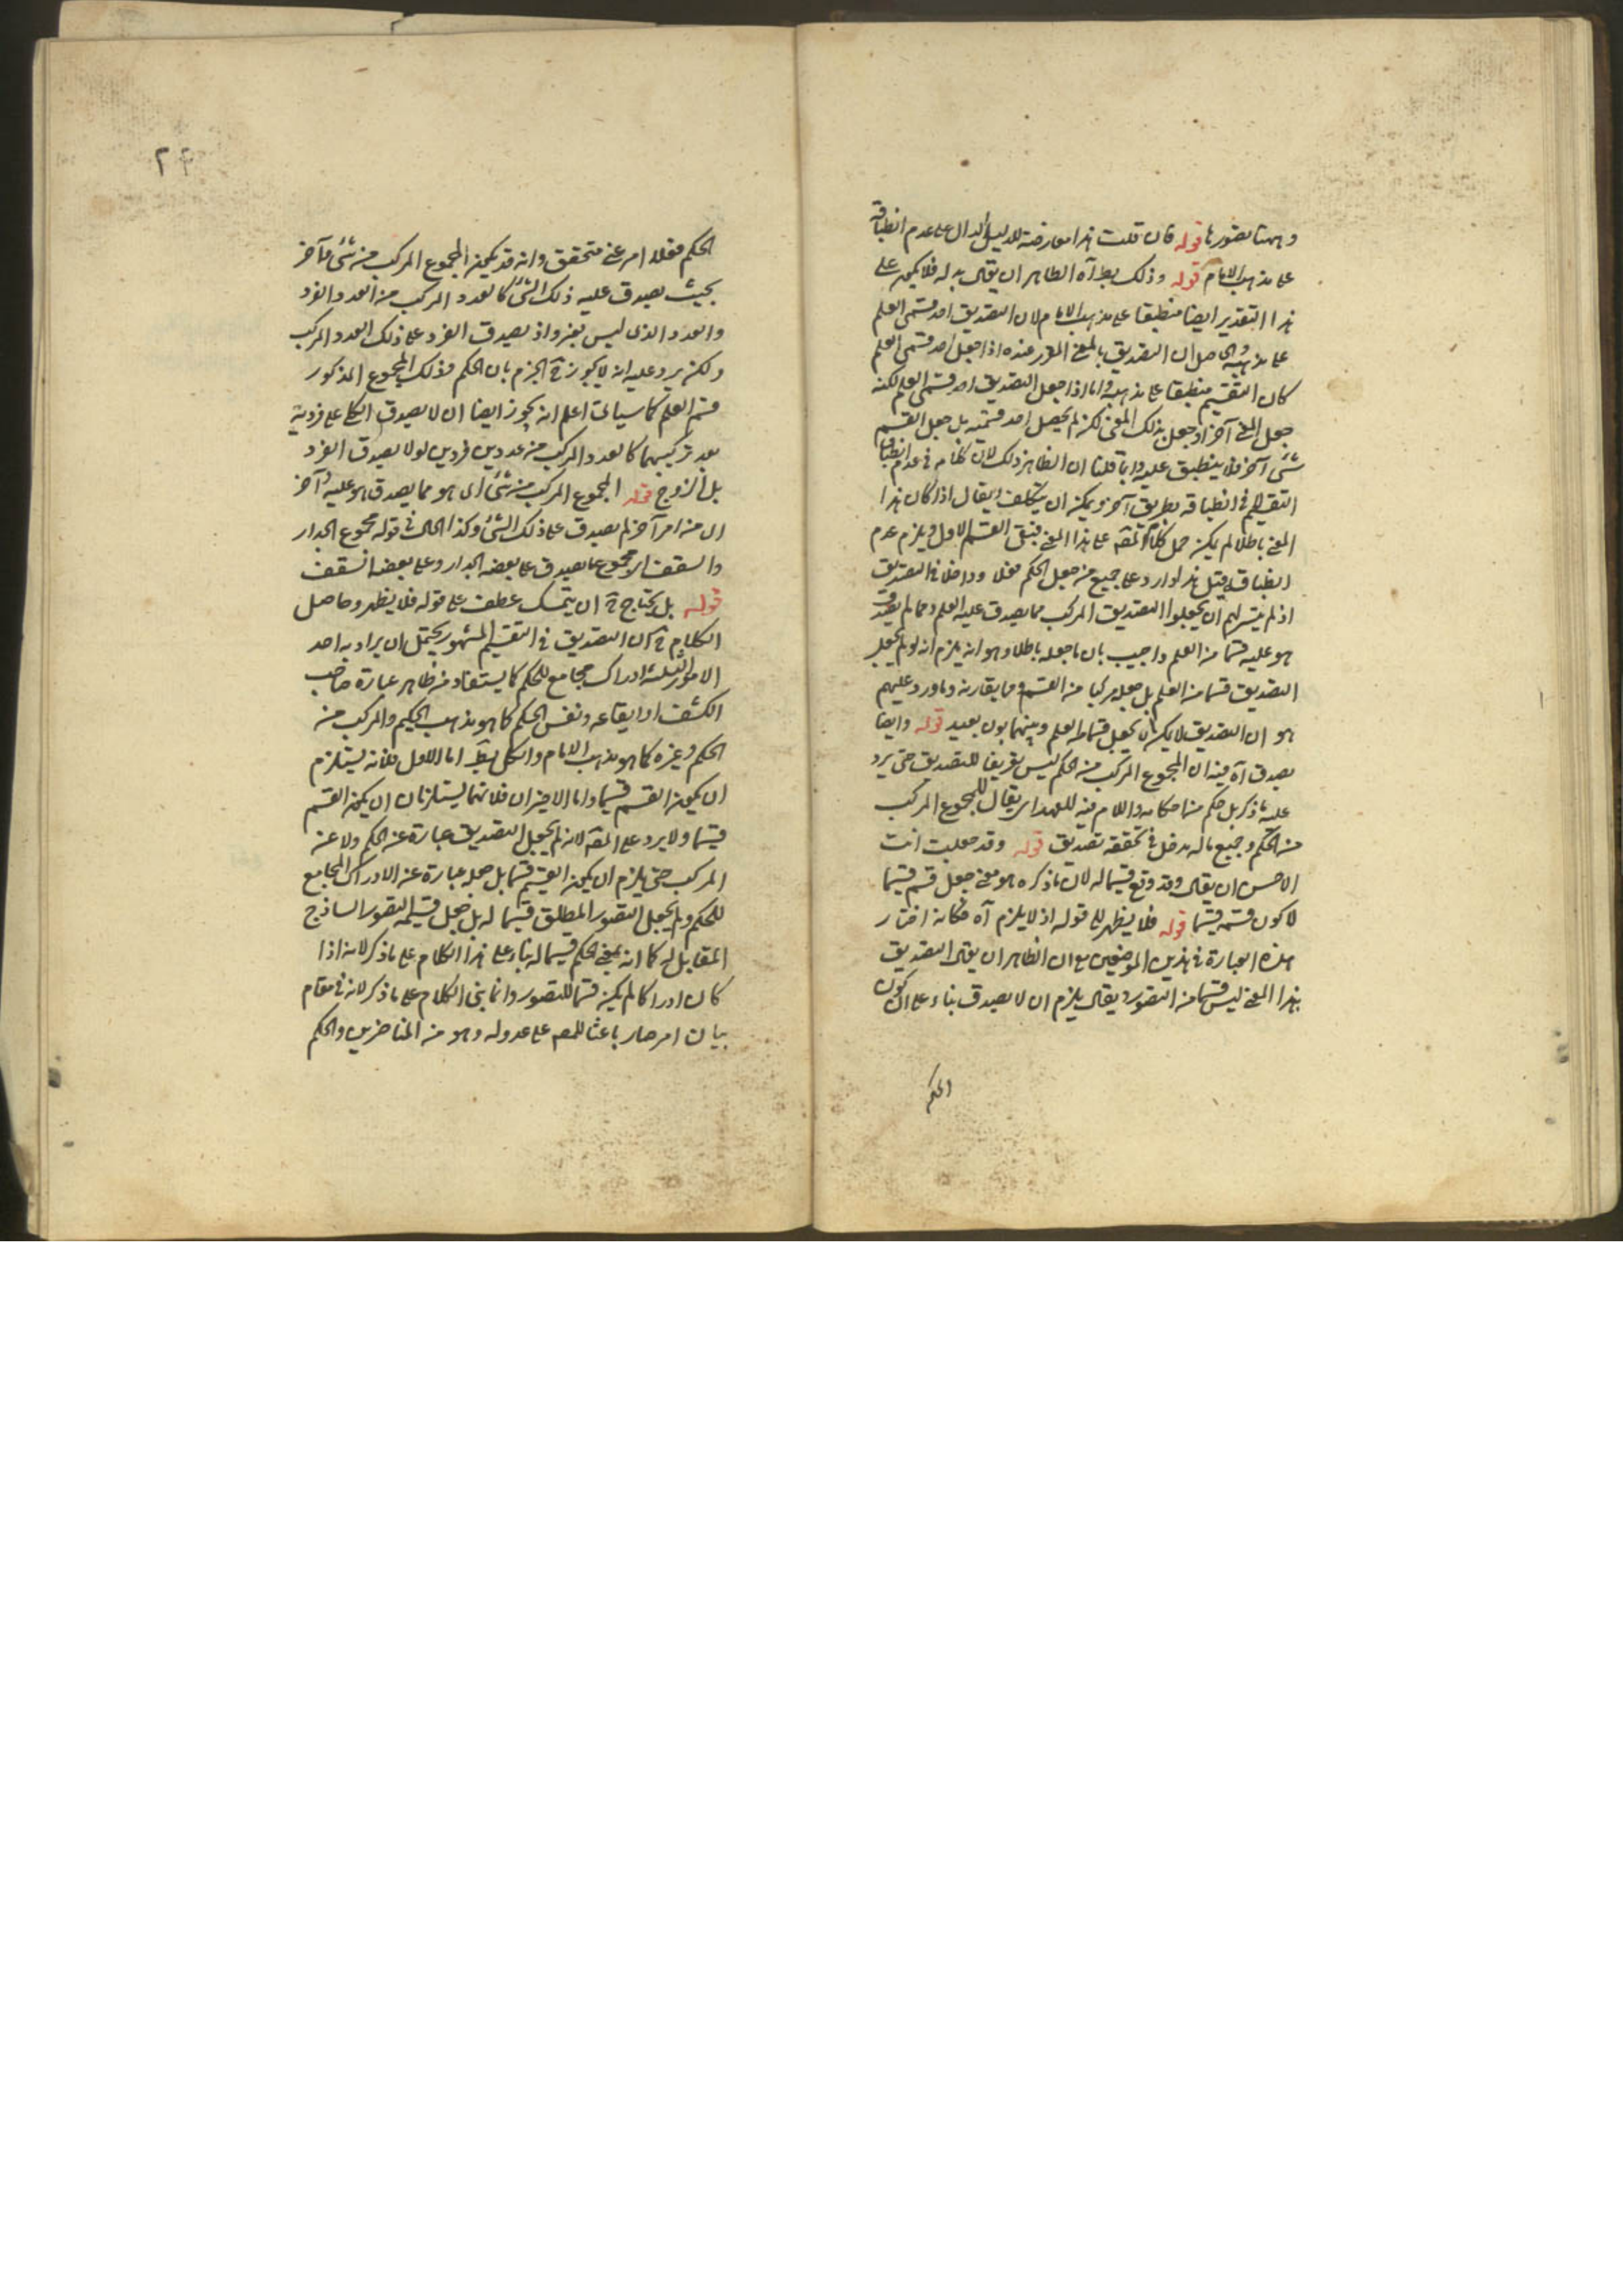 وههنا تصورها قوله فان قلت هذا معارضة للدليل الدال على عدم انطباقه
على مذهب الامام قوله وذلك بط آه الظاهر ان يقال بدله فلا يكون على
هذا التقدير ايضا منطبقا على مذهب الامام لان التصديق احد قسمى العلم
على مذهبه والحاصل ان التصديق بالمعنى المقرر عنده اذا جعل احد قسمى العلم
كان التقسيم منطبقا على مذهبه واما اذا جعل التصديق احد قسمى العلم لكنه
جعل لمعنى آخر او جعل بذلك المعنى لكن لم يجعل احد قسميه بل جعل القسم
شئ آخر فلا ينطبق عليه وانما قلنا ان الظاهر ذلك لان كلامه فى عدم انطباق
التقسيم لا فى انطباقه بطريق آخر ويمكن ان يتكلف ويقال اذا كان هذا
المعنى باطلا لم يكن حمل كلام المص على هذا المعنى فبقى القسم الاول ويلزم عدم
انطباقه قيل هذا وارد على جميع من جعل الحكم فعلا وداخلا فى التصديق
اذ لم يتيسر لهم ان يجعلوا التصديق المركب مما يصدق عليه العلم ومما لم يصدق
هو عليه قسما من العلم واجيب بان ما جعله باطلا وهو انه يلزم انه لو لم يجعل
التصديق قسما من العلم بل جعله مركبا من القسم وما يقارنه وما ورد عليهم
هو ان التصديق لا يمكن ان يجعل قسما من العلم وبينهما بون بعيد قوله وايضا
يصدق آه فيه ان المجموع المركب من الحكم ليس تعريفا للتصديق حتى يرد
عليه ما ذكر بل حكم من احكامه واللام فيه للعهد اى يقال للمجموع المركب
من الحكم وجميع ما له مدخل فى تحققه تصديق قوله وقد جعلت انت
الاحسن ان يقال وقد وقع قسيما له لان ما ذكره هو معنى جعل قسم قسيما
لا كون قسمه قسيما قوله فلا يظهر للا قوله اذ لا يلزم آه فكانه اختار
هذه العبارة فى هذين الموضعين مع ان الظاهر ان يقال التصديق
بهذا المعنى ليس قسما من التصور ويقال يلزم ان لا يصدق بناء على ان كون
الحكم
٢٤
الحكم فعلا امر غير متحقق وانه قد يكون المجموع المركب من شئ وآخر
بحيث يصدق عليه ذلك الشئ كالعدد المركب من العدد الفرد
والعدد الذى ليس بفرد اذ يصدق الفرد على ذلك العدد المركب
ولكن يرد عليه انه لا يجوز ح الجزم بان الحكم فذلك المجموع المذكور
قسم العلم كما سيأتى اعلم انه يجوز ايضا ان لا يصدق الكل على فردية
بعد تركيبهما كالعدد المركب من عددين فردين لولا يصدق الفرد
بل الزوج قوله المجموع المركب من شئ اى هو مما يصدق هو عليه وآخر
اى من امر آخر لم يصدق على ذلك الشئ وكذا الحال فى قوله مجموع الجدار
والسقف اى مجموع ما يصدق على بعضه الجدار وعلى بعضه السقف
قوله بل يحتاج ح ان يتمسك عطف على قوله فلا يظهر وحاصل
الكلام ح ان التصديق فى التقسيم المشهور يحتمل ان يراد به احد
الامور الثلثة ادراك مجامع للحكم كما يستفاد من ظاهر عبارة صاحب
الكشف او ايقاعه ونفس الحكم كما هو مذهب الحكيم والمركب من
الحكم وغيره كما هو مذهب الامام والكل بط اما الاول فلانه يستلزم
ان يكون القسم قسيما واما الاخيران فلانهما يستلزمان ان يكون القسم
قسيما ولا يرد على المص لانه لم يجعل التصديق عبارة عن الحكم ولا عن
المركب حتى يلزم ان يكون القسيم قسما بل جعله عبارة عن الادراك المجامع
للحكم ولم يجعل التصور المطلق قسيما له بل جعل قسيمه التصور الساذج
المقابل له كما انه بمعنى الحكم قسيما له بناء على هذا الكلام على ما ذكر لانه اذا
كان ادراكا لم يكن قسما للتصور وانما بنى الكلام على ما ذكر لانه فى مقام
بيان امر صار باعثا للمص على عدوله وهو من المتأخرين والحكم